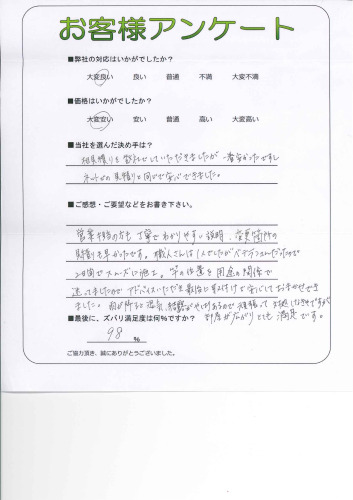 お客様アンケート
■弊社の対応はいかがでしたか？
大変良い 良い 普通 不満 大変不満
■価格はいかがでしたか？
大変安い 安い 普通 高い 大変高い
■当社を選んだ決め手は？
相見積りを 数社していただきましたが 一番安かったですし
ネットでの見積りと同じで安心できました。
■ご感想・ご要望などをお書き下さい。
営業担当の方も 丁寧でわかりやすい説明、変更箇所の
も早かったです。職人さんは1人でしたがベテランさんだったので
2日間でスムーズに施工。 の作業を 用途の関係で
迷ってましたが アドバイスいただき 安心しておまかせでき
ました。 湿気、結露が
■最後に、ズバリ満足度は何%ですか？ 部屋が広がりとても満足です。
98 %
ご協力頂き、誠にありがとうございました。